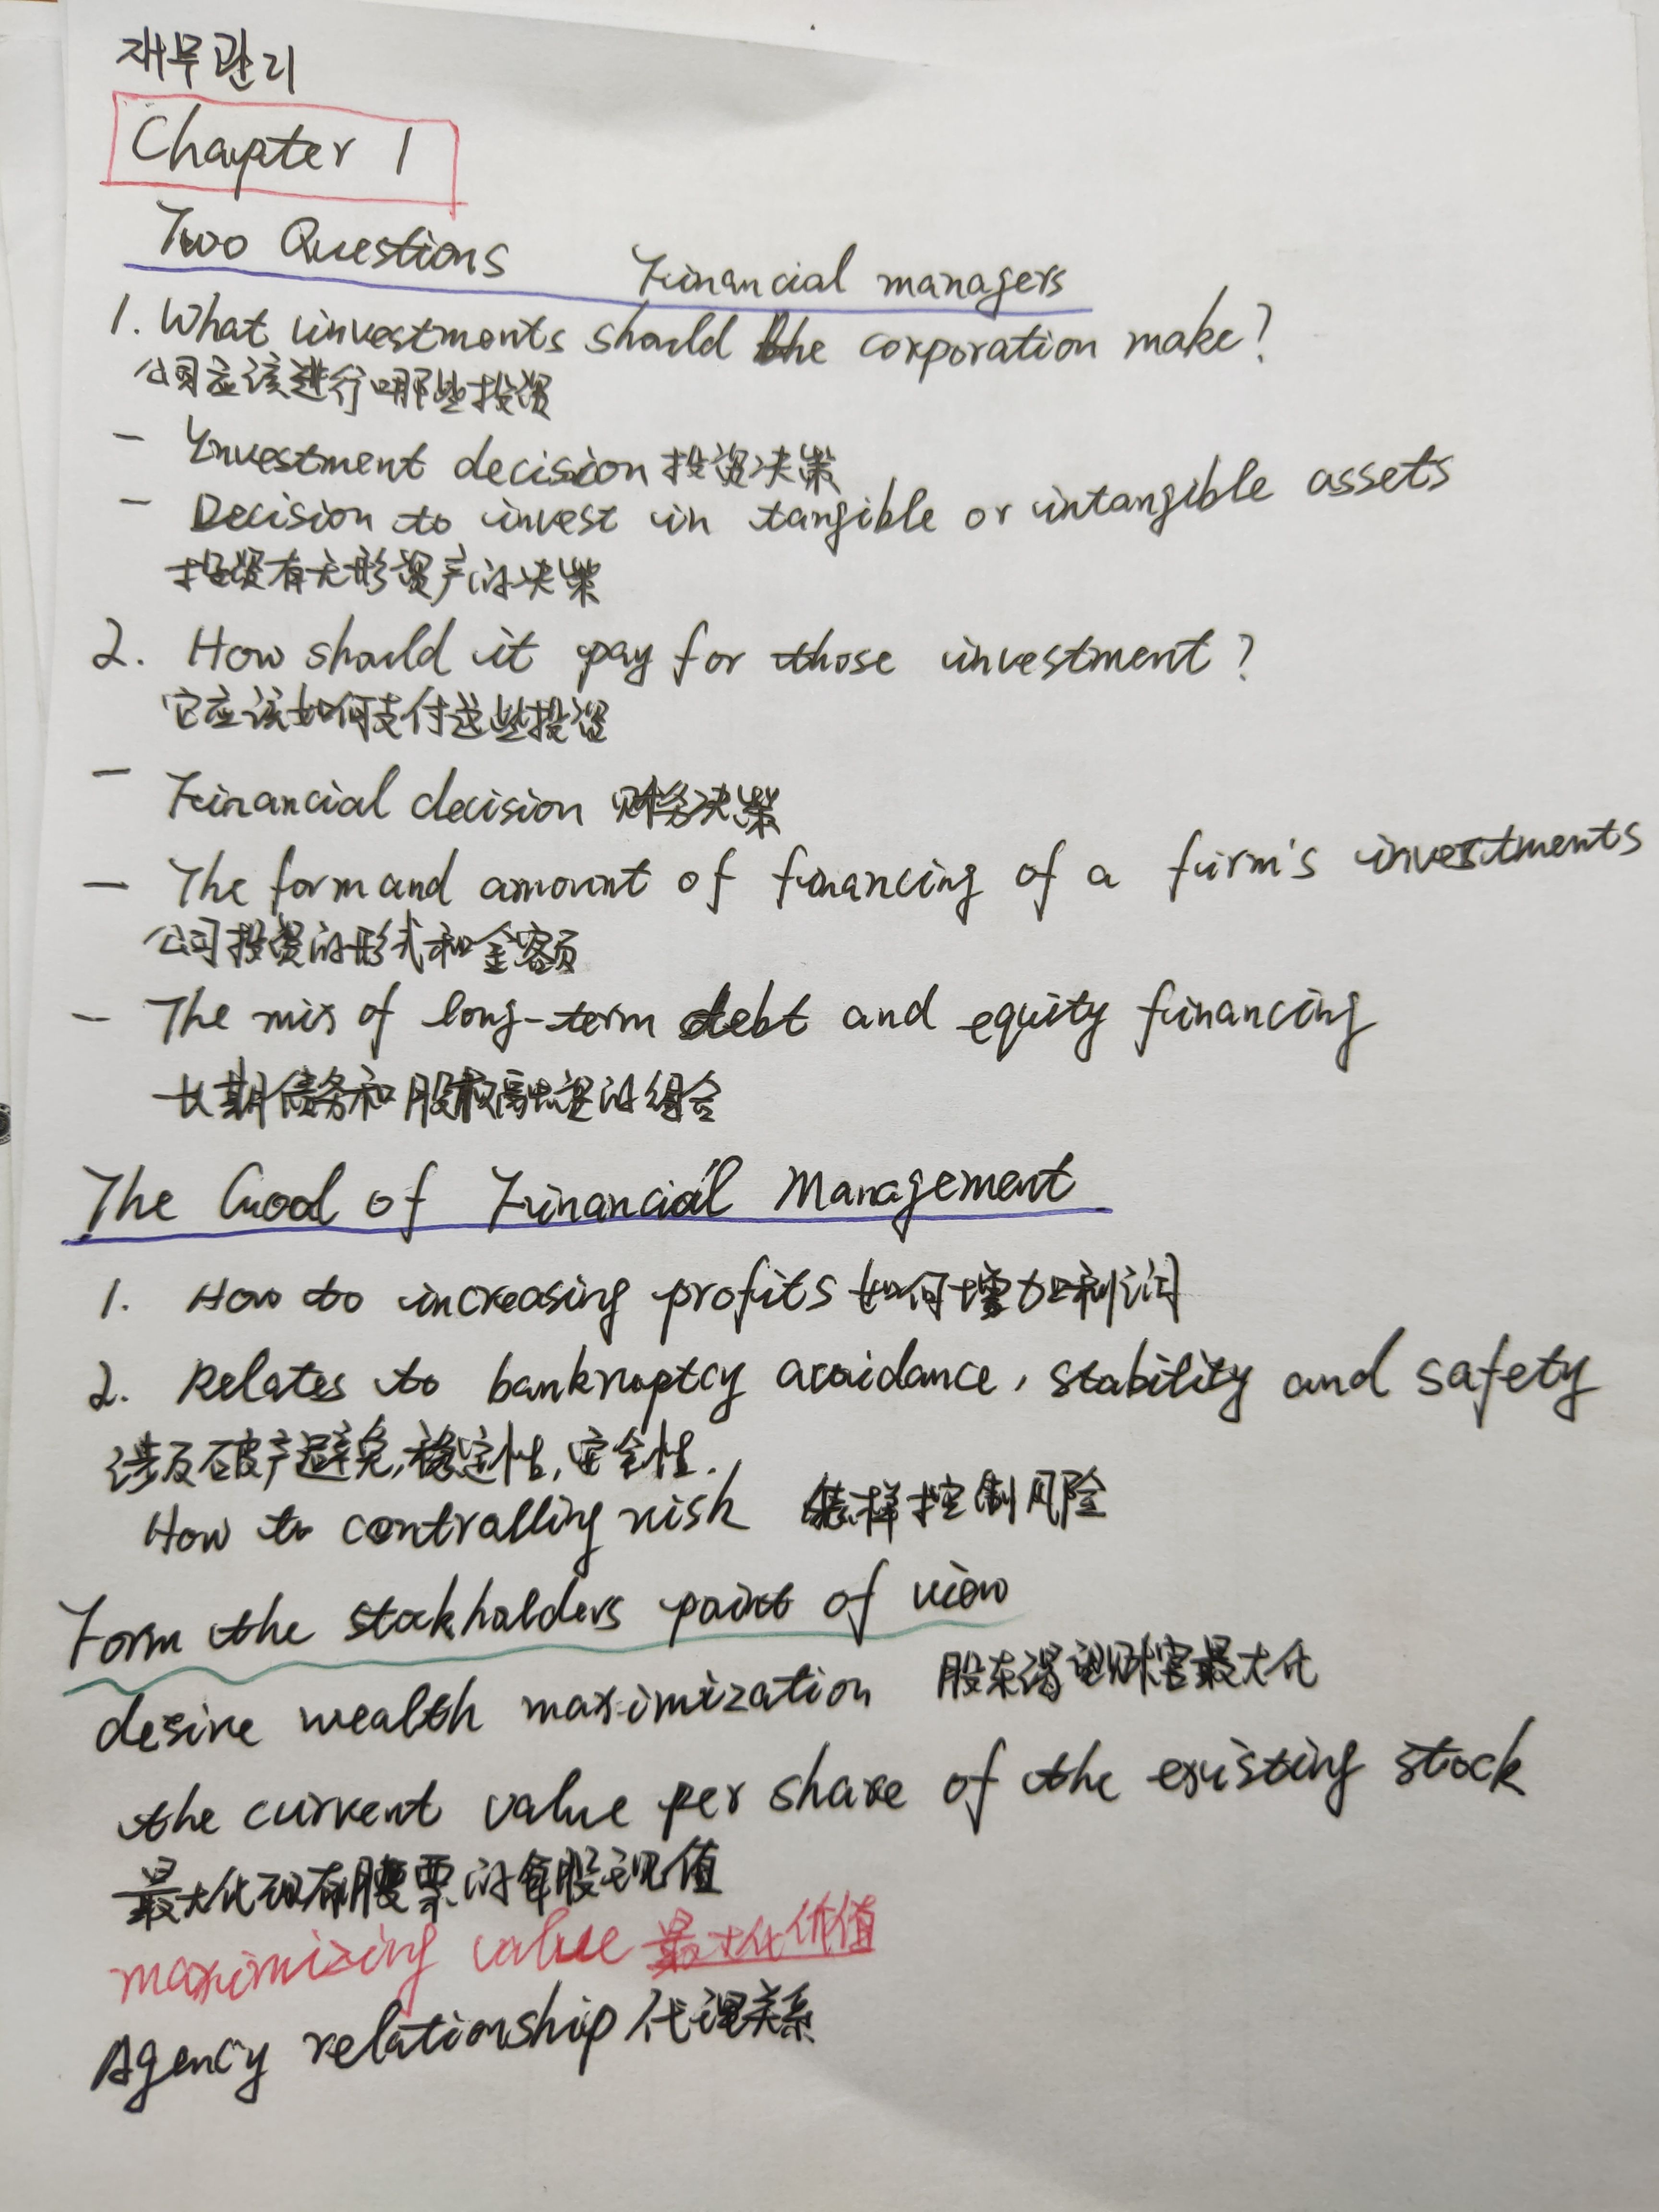 재무관리
Chapter 1
Two Questions Financial managers
1. What investments should the corporation make?
公司应该进行哪些投资
- Investment decision 投资决策
- Decision to invest in tangible or intangible assets
投资有无形资产的决策
2. How should it pay for those investment?
它应该如何支付这些投资
- Financial decision 财务决策
- The form and amount of financing of a firm's investments
公司投资的形式和金额
- The mix of long-term debt and equity financing
长期债务和股权融资的组合
The Goal of Financial Management
1. How to increasing profits 如何增加利润
2. Relates to bankruptcy avoidance, stability and safety
涉及破产避免,稳定性,安全性.
How to controlling risk 怎样控制风险
Form the stockholders point of view
desire wealth maximization 股东渴望财富最大化
the current value per share of the existing stock
最大化现有股票的每股现值
maximizing value 最大化价值
Agency relationship 代理关系